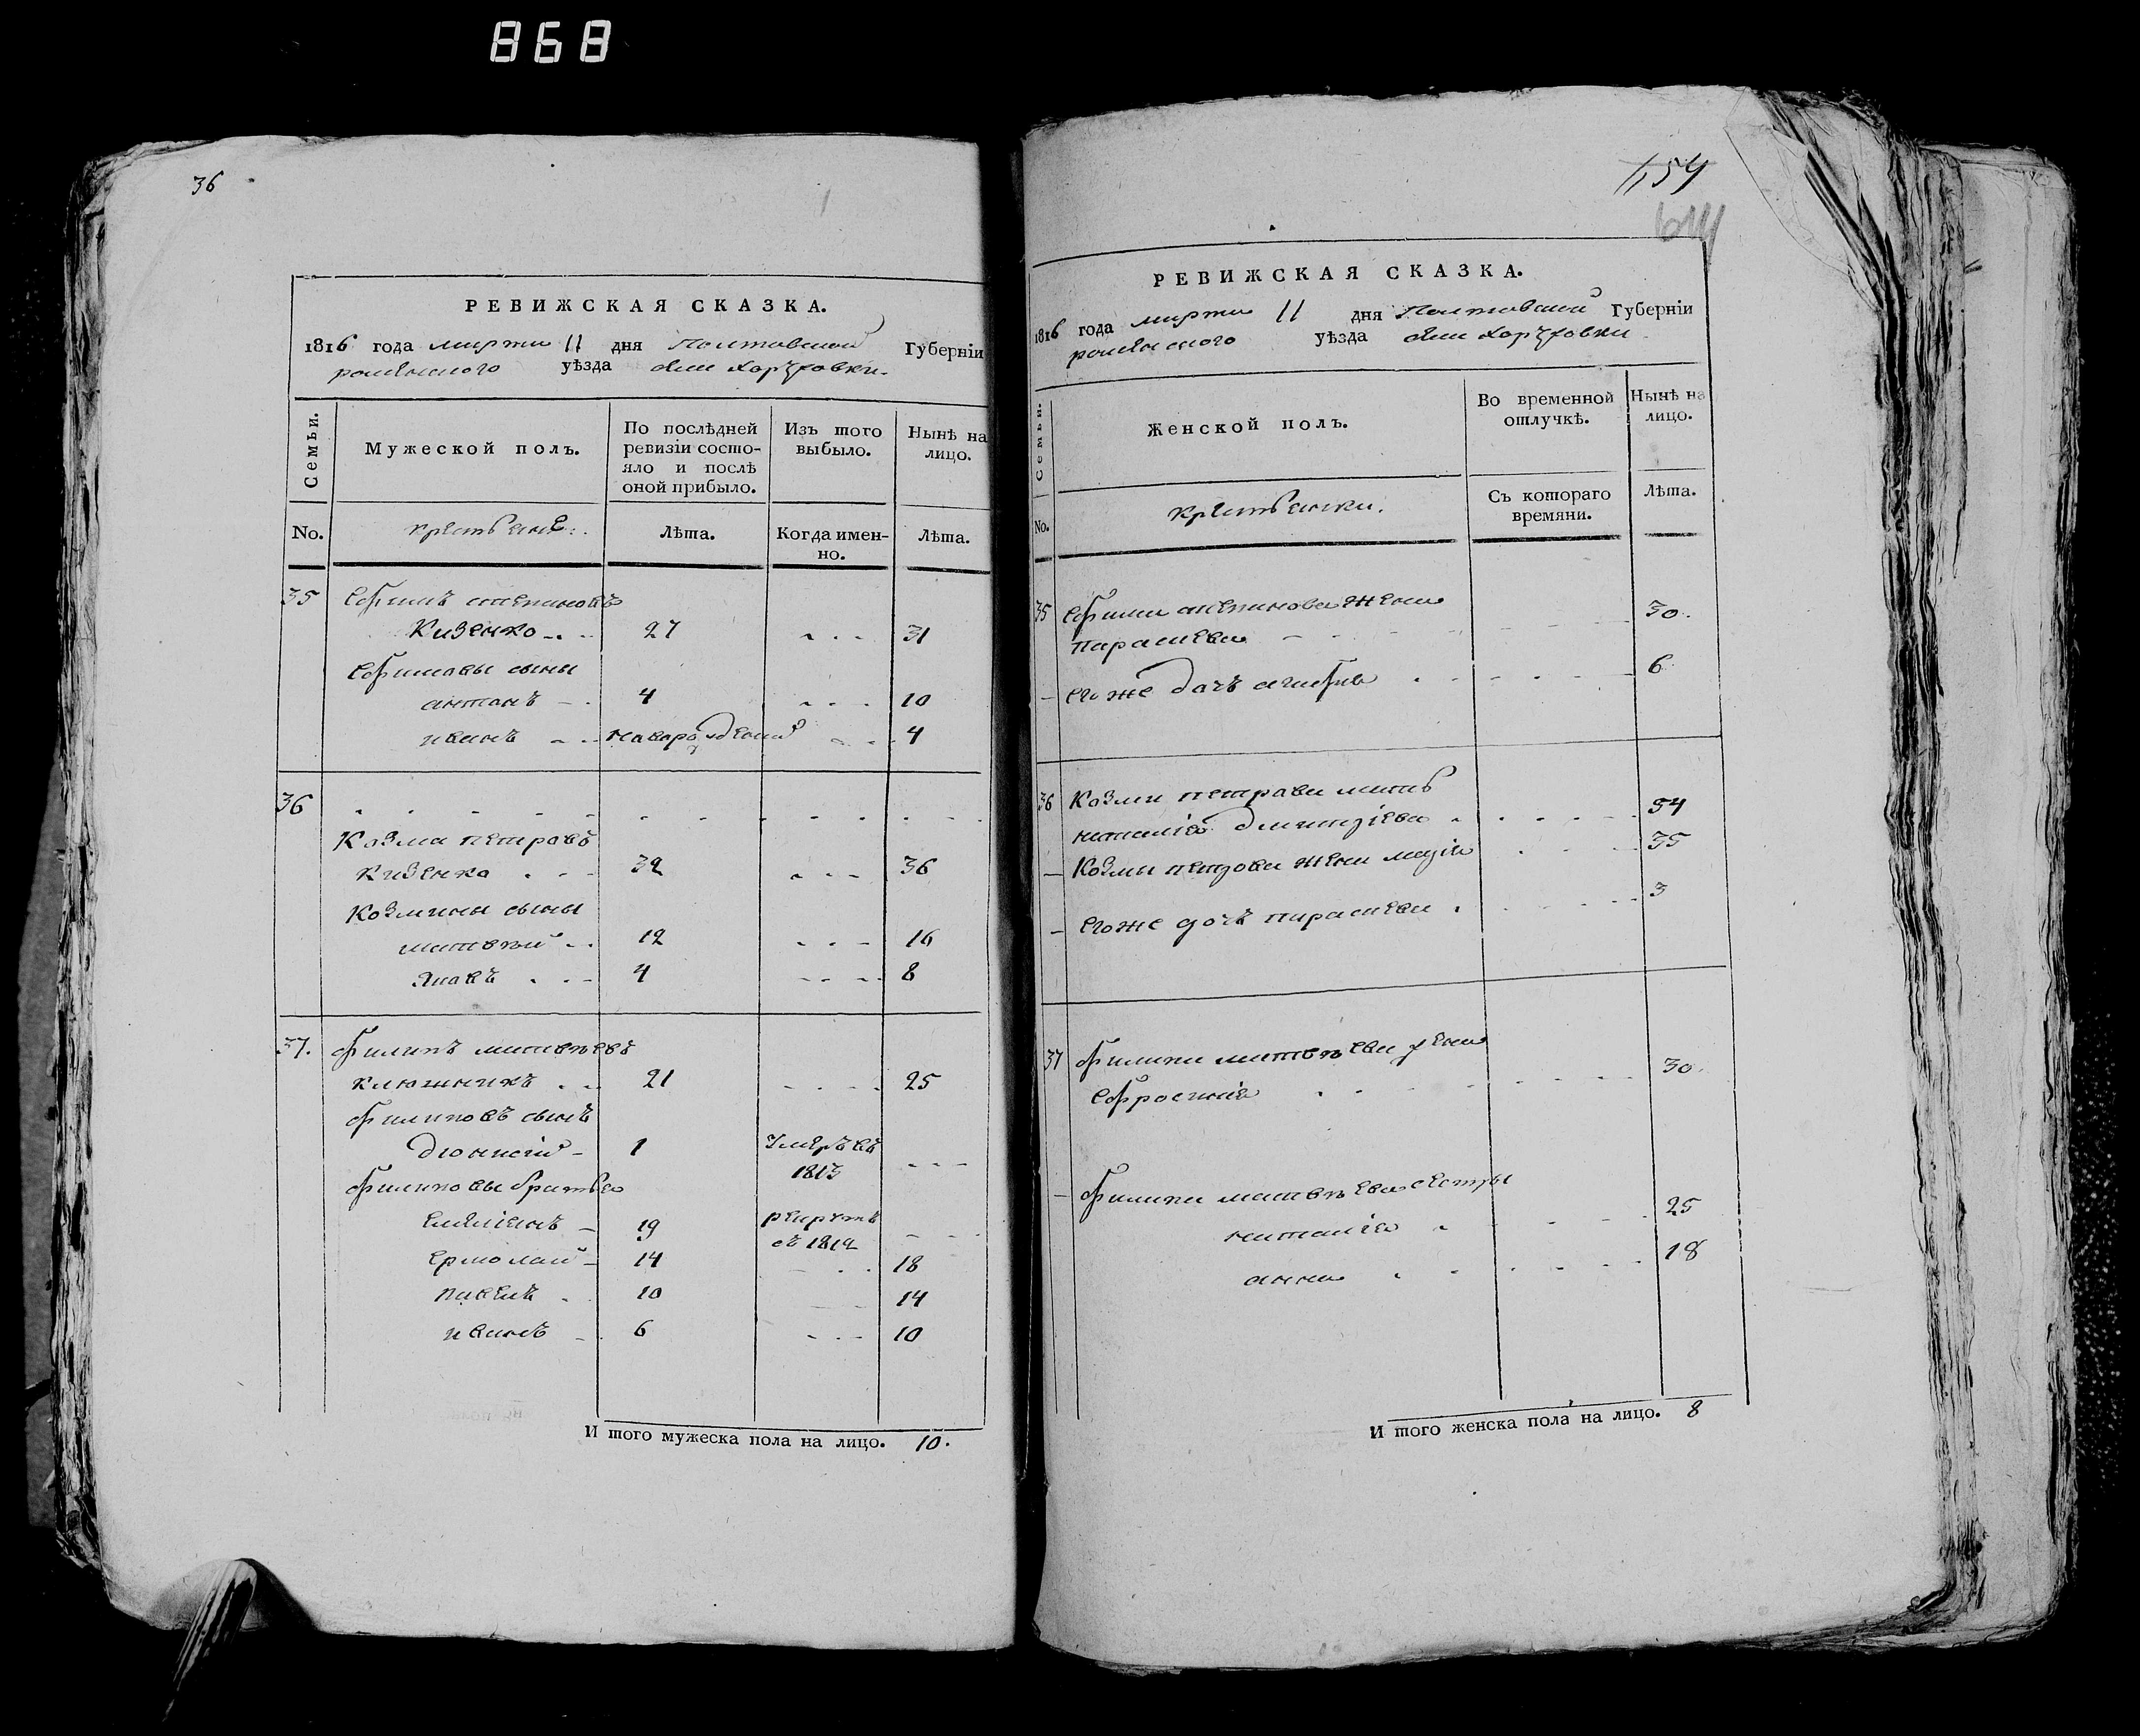 868
36
РЕВИЖСКАЯ СКАЗКА.
1816 года марта 11 дня Полтавской Губерніи
роменского уѣзда
Семьи.
Мужеской полъ.
По послѣдней ревизіи состояло и послѣ оной прибыло.
Изъ того выбыло.
Нынѣ на лицо.
No.
крестьяне.
Лѣта.
Когда именно.
Лѣта.
35 Ефимъ степановъ
Кизенко 27 31
Ефимовы сыны
антонъ 4 10
иванъ новорожденной 4
36
Козма петровъ
Кизенко 32 36
Козмины сыны
матвѣй 12 16
Яковъ 4 8
37. Филипъ матвѣевъ
Ключникъ 21 25
Филиповъ сынъ
дионисій 1 умеръ въ
1813
Филиповы братья
Емеліянъ 19 рекрутъ
съ 1812
Ермолай 14 18
павелъ 10 14
иванъ 6 10
И того мужеска пола на лицо. 10.
154
РЕВИЖСКАЯ СКАЗКА.
1816 года марта 11 дня Полтавской Губерніи
роменского уѣзда
Семьи.
Женской полъ.
Во временной отлучкѣ.
Нынѣ на лицо.
No.
крестьянки.
Съ котораго времяни.
Лѣта.
35 Ефима степанова жена
параскева 30.
его же дочь агафия 6
36 Козмы петрова мать
наталія дмитріева 54
Козмы петрова жена марія 35
его же дочь параскева 3
37 Филипа матвѣева жена
Ефросинія 30
Филипа матвѣева сестры
наталія 25
анна 18
И того женска пола на лицо. 8